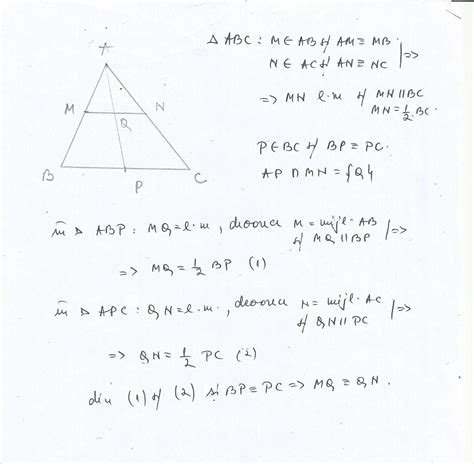 A
M N
Q
B P C
Δ ABC : M ∈ AB și AM ≡ MB |=>
N ∈ AC și AN ≡ NC
=> MN l.m și MN ∥ BC
MN = 1/2 · BC.
P ∈ BC și BP ≡ PC.
AP ∩ MN = {Q}
în Δ ABP : MQ = l.m , deoarece M = mijl. AB |=>
și MQ ∥ BP
=> MQ = 1/2 BP (1)
în Δ APC : QN = l.m. , deoarece N = mijl. AC |=>
și QN ∥ PC
=> QN = 1/2 PC (2)
din (1) și (2) și BP ≡ PC => MQ ≡ QN .